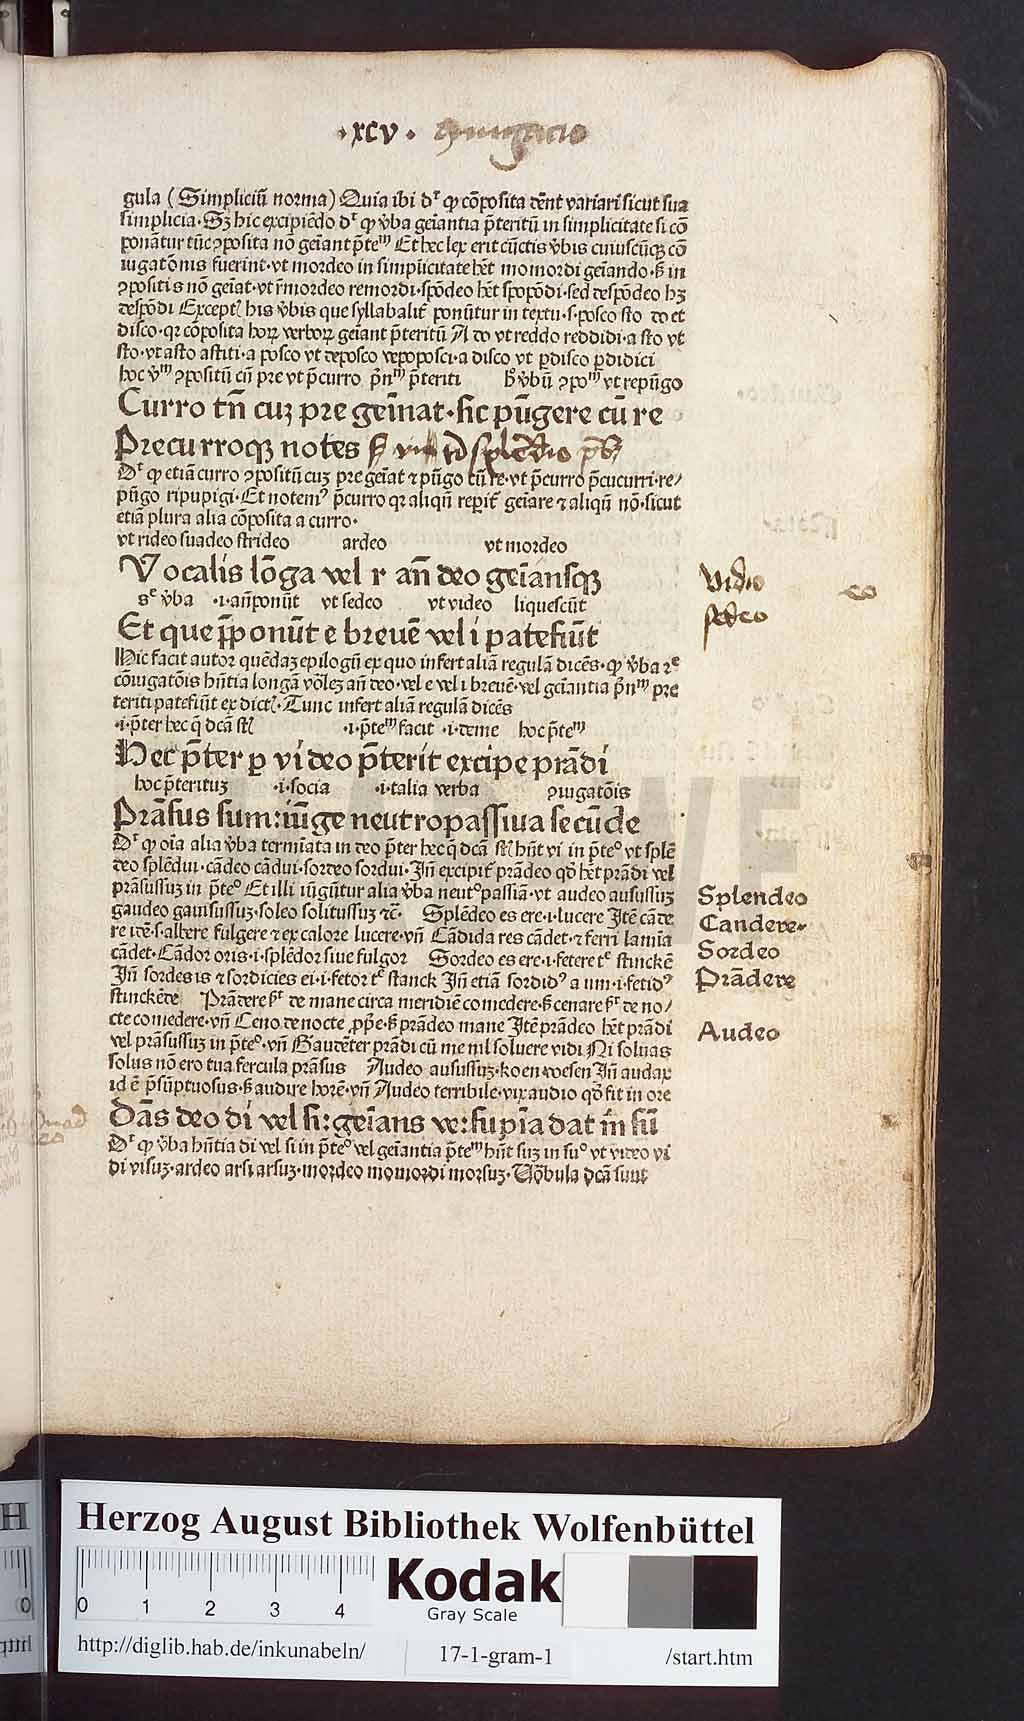 ·xcv·
gula (Simpliciū norma) Quia ibi dr̄ qꝫ cōposita tēnt variari sicut sua
simplicia·Sꝫ hic excipiēdo dr̄ ꝙ v̄ba geīantia p̄teritū in simplicitate si cō
ponātur tūc ꝯposita nō geīant p̄teᵐ Et hec lex erit cūctis v̄bis cuiuscūqꝫ cō
iugatōnis fuerint·vt mordeo in simplicitate hēt momordi geīando·ꝫ in
ꝯpositis nō geīat·vt r̄mordeo remordi·spōdeo hēt spopōdi·sed despōdeo hꝫ
despōdi Except̄ his v̄bis que syllabalit̄ ponūtur in textu·s·posco sto do et
disco·qꝛ cōposita hoꝝ verboꝝ geīant p̄teritū A do vt reddo reddidi·a sto vt
sto·vt asto astiti·a posco vt deposco depoposci·a disco vt ꝑdisco ꝑdidici
hoc v̄ᵐ ꝯpositū cū pre vt p̄curro p̄nᵐ p̄teriti hͦ v̄bū ꝯpoᵐ vt repūgo
Curro tn̄ cuꝫ pre geīnat·sic pūgere cū re
Precurroqꝫ notes
Dr̄ ꝙ etiā curro ꝯpositū cuꝫ pre geīat ⁊ pūgo cū re·vt p̄curro p̄cucurri·re/
pūgo ripupigi·Et notemꝰ p̄curro qꝛ aliqn̄ reꝑit̄ geīare ⁊ aliqn̄ nō·sicut
etiā plura alia cōposita a curro·
vt rideo suadeo strideo ardeo vt mordeo
Vocalis lōga vel r an̄ deo geīansqꝫ
sᵉ v̄ba ·i·an̄ponūt vt sedeo vt video liquescūt
Et que p̄ponūt e breuē vel i patefiūt
Hic facit autor quēdaꝫ epilogū ex quo infert aliā regulā dicēs·ꝙ v̄ba 2ᵉ
cōiugatōis hn̄tia longā vōleꝫ an̄ deo·vel e vel i breuē·vel geīantia p̄nᵐ pre
teriti patefiūt ex dict̄·Tunc infert aliā regulā dicēs
·i·p̄ter hec q̄ dcā st̄ ·i·p̄teᵐ facit ·i·deme hoc p̄teᵐ
Hec p̄ter ꝑ vi deo p̄terit excipe prādi
hoc p̄terituꝫ ·i·socia ·i·talia verba ꝯiugatōis
Prāsus sum:iūge neutropassiua secūde
Dr̄ ꝙ oīa alia v̄ba termīata in deo p̄ter hec q̄ dcā st̄ hn̄t vi in p̄teᵒ vt splē
deo splēdui·cādeo cādui·sordeo sordui·In̄ excipit̄ prādeo qd̄ hēt prādi vel
prāsussuꝫ in p̄teᵒ Et illi iūgūtur alia v̄ba neutᵒpassiā·vt audeo aususuꝫ
gaudeo gauisussuꝫ·soleo solitussuꝫ ⁊c̄· Splēdeo es ere·i·lucere Itē cāde
re idē·s·albere fulgere ⁊ ex calore lucere·vn̄ Cādida res cādet·⁊ ferri lamīa
cādet·Cādor oris·i·splēdor siue fulgor Sordeo es ere·i·fetere tᵉ stinckē
In̄ sordes is ⁊ sordicies ei·i·fetor tᵉ stanck In̄ etiā sordidꝰ a um·i·fetidꝰ
stinckēde Prādere ꝫ̄ de mane circa meridiē comedere·ꝫ cenare ꝫ̄ de no/
cte comedere·vn̄ Ceno de nocte ꝓpe·ꝫ prādeo mane Itē prādeo hēt prādi
vel prāsussuꝫ in p̄teᵒ·vn̄ Gaudēter prādi cū me nil soluere vidi Ni soluas
solus nō ero tua fercula prāsus Audeo aususuꝫ·koen wesen In̄ audax
id ē p̄sūptuosus·ꝫ audire horē·vn̄ Audeo terribile·vix audio qd̄ fit in ore
Dās deo di vel si:geīans ve:supīa dat m̄ sū
Dr̄ ꝙ v̄ba hn̄tia di vel si in p̄teᵒ vel geīantia p̄teᵐ hn̄t suꝫ in suᵒ vt video vi
di visuꝫ·ardeo arsi arsuꝫ·mordeo momordi morsuꝫ·Uōbula dcā sunt
Video
eo
sedeo
Splendeo
Candere
Sordeo
Prādere
Audeo
Herzog August Bibliothek Wolfenbüttel
0 1 2 3 4
Kodak
Gray Scale
http://diglib.hab.de/inkunabeln/
17-1-gram-1
/start.htm